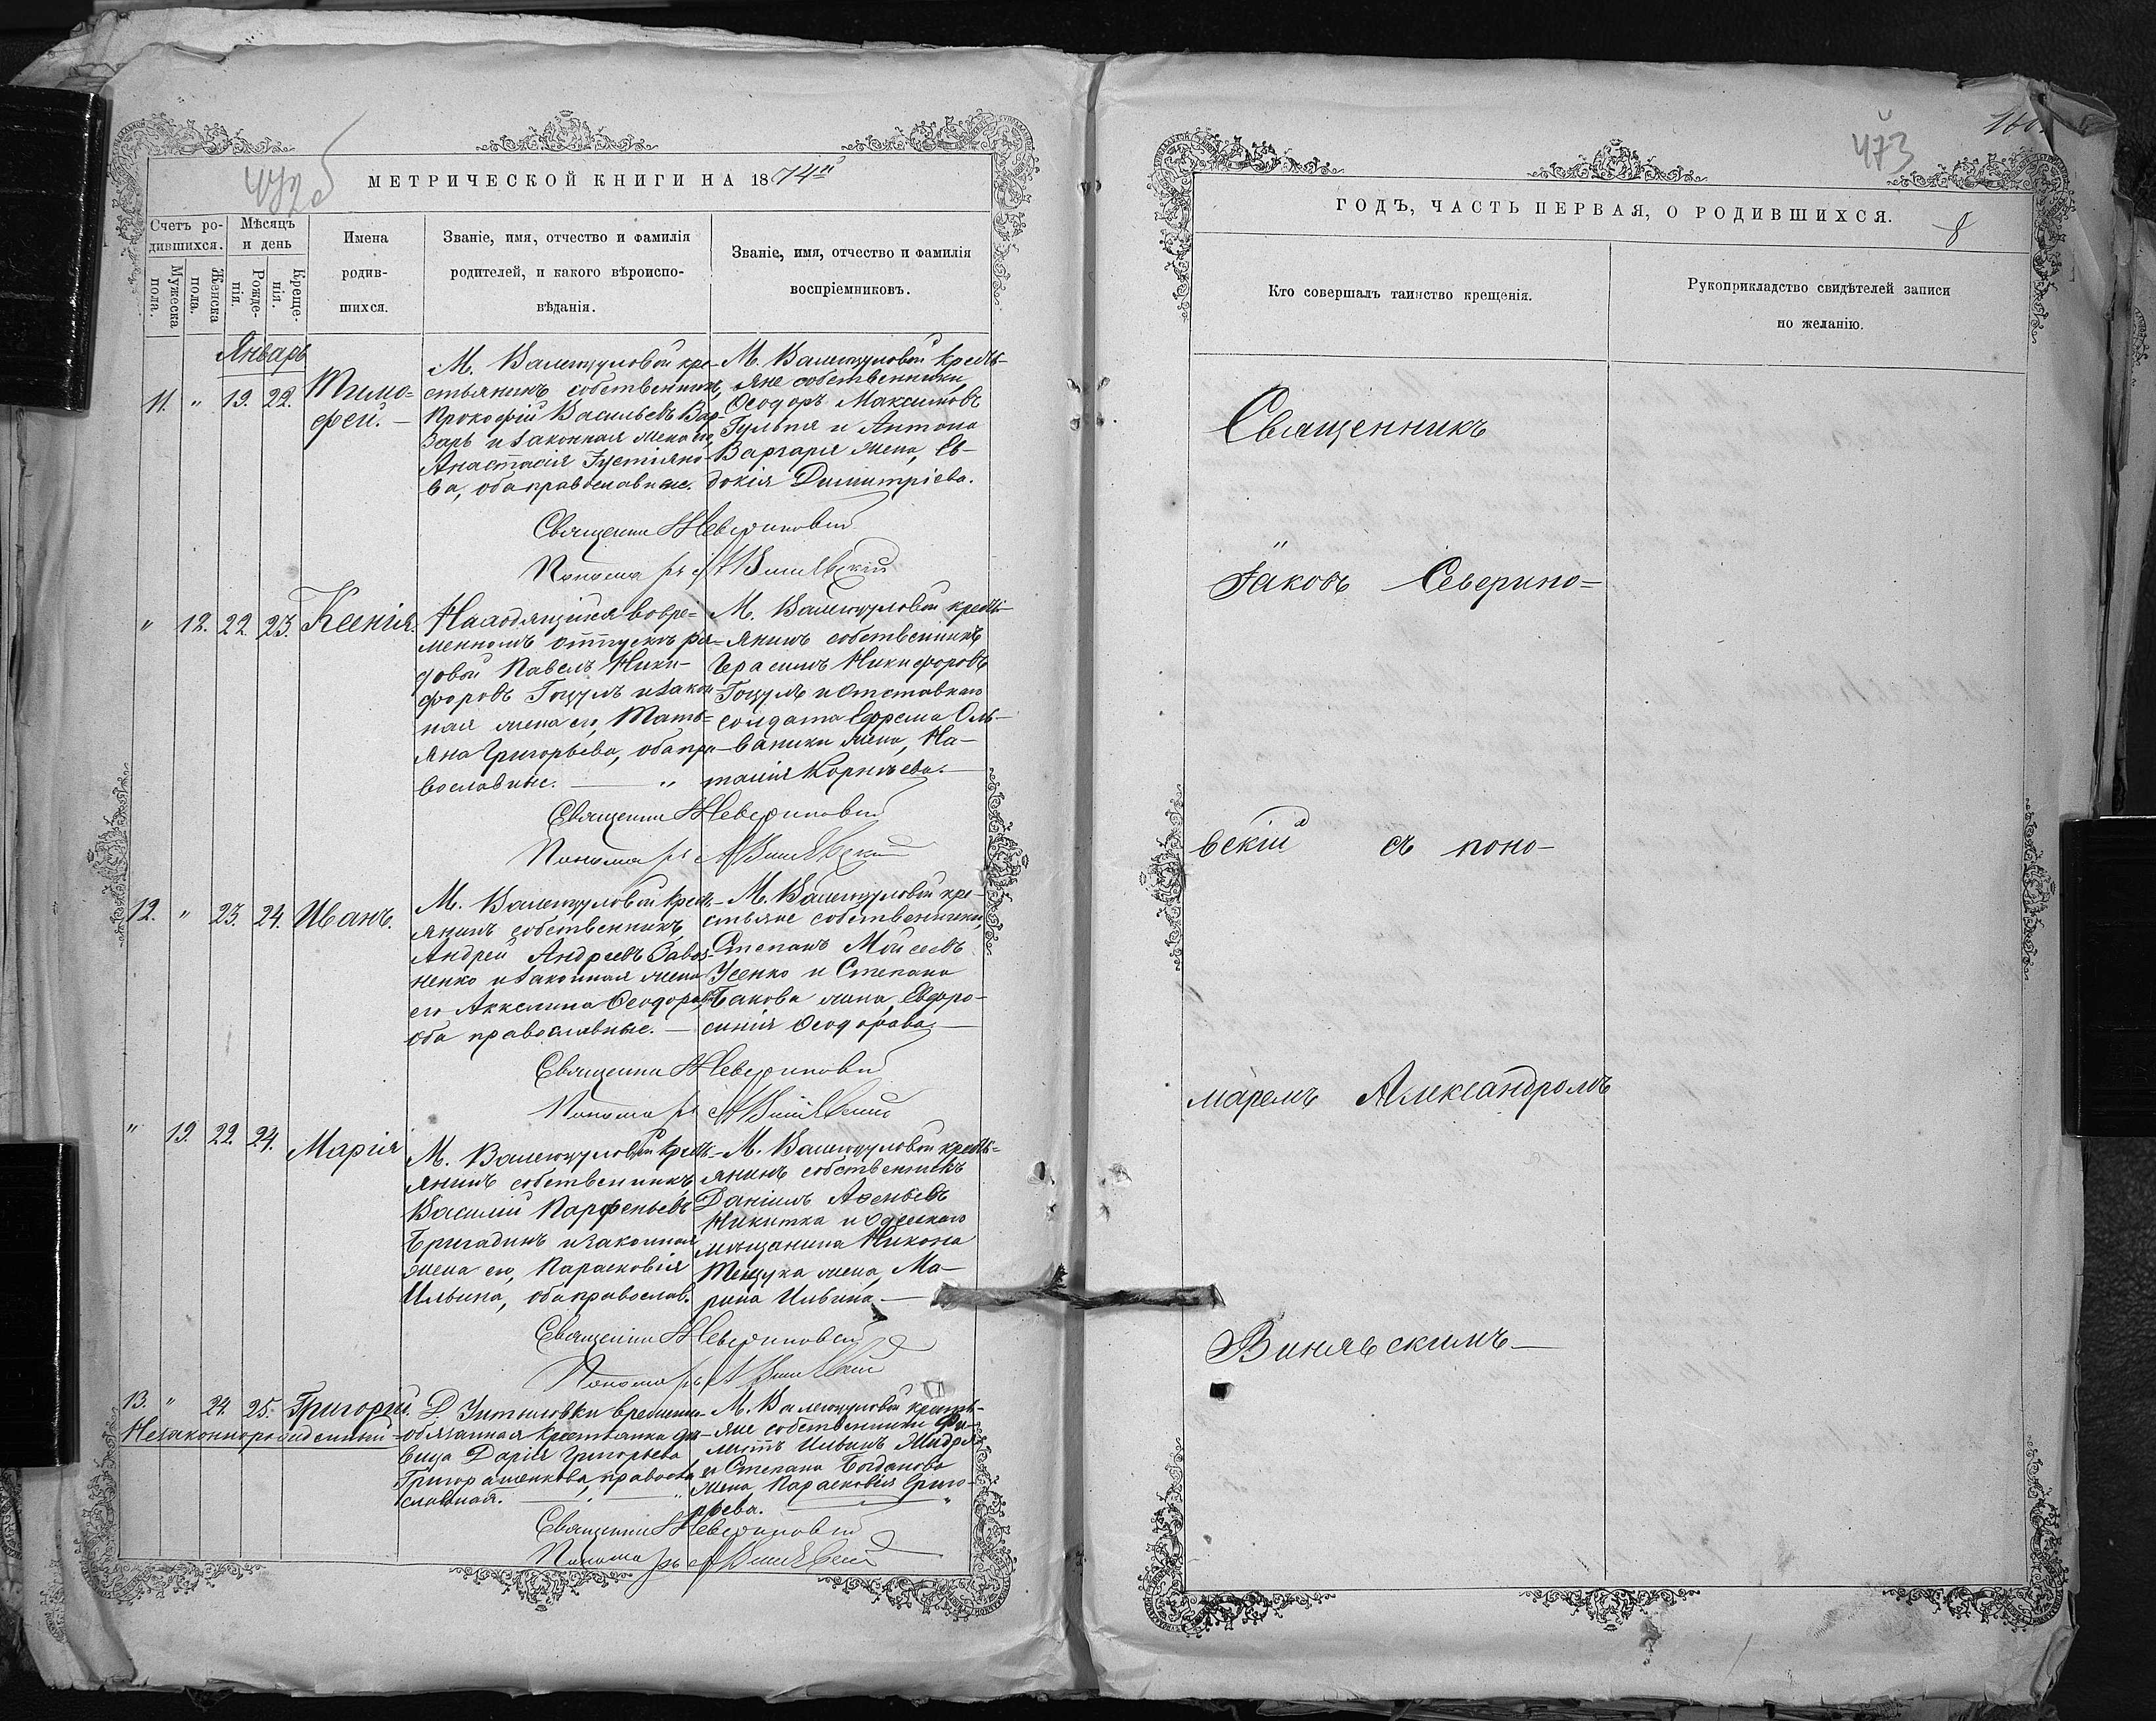 472б
МЕТРИЧЕСКОЙ КНИГИ НА 1874й
Счетъ ро-
дившихся.
Мужеска
пола.
Женска
пола.
Мѣсяцъ
и день
Рожде-
нія.
Креще-
нія.
Имена
родив-
шихся.
Званіе, имя, отчество и фамилія
родителей, и какого вѣроиспо-
вѣданія.
Званіе, имя, отчество и фамилія
воспріемниковъ.
Январь
11. " 19. 22.
Тимо=
фей.
М. Валегоцуловой кре-
стьянинъ собственникъ,
Прокофій Васильевъ Вар-
зарь и законная жена его,
Анастасія Іустіяно-
ва, оба православные.
М. Валегоцуловой крестья-
яне собственники
Ѳеодоръ Максимовъ
Гульпя и Антона
Варзаря жена, Ев-
докія Димитріева.
Священни Северіновскій
Пономарь А Винявскій
" 12. 22. 23. Ксенія.
Находящійся во вре=
менномъ отпускѣ ря-
довой Павелъ Ники-
форовъ Гоцулъ и закон-
ная жена его, Тать=
яна Григорьева, оба пра-
вославные. — "
М. Валегоцуловой кресть-
янинъ собственникъ
Герасимъ Никифоровъ
Гоцулъ и отставнаго
солдата Ефрема Оль-
ваники жена, На-
талія Корнѣева.
Священни Северіновскій
Пономарь А Винявскій
12. " 23. 24. Иванъ.
М. Валегоцуловой кресть-
янинъ собственникъ,
Андрей Андреевъ
ненко и законная жена
его Акилина Ѳеодорова,
оба православные. —
М. Валегоцуловой кре-
стьяне собственники,
Степанъ Мойсеевъ
Усенко и Степана
Бакова жена, Евфро-
синія Ѳеодорова. —
Священни Северіновскій
Пономарь А Винявскій
" 13. 22. 24. Марія
М. Валегоцуловой кресть-
янинъ собственникъ
Василій Парфеньевъ
Бригадинъ и законная
жена его, Парасковія
Ильина, оба православ.
М. Валегоцуловой кресть=
янинъ собственникъ
Даніилъ
Никитка и Одесскаго
мѣщанина Никона
жена, Ма-
рина Ильина —
Священни Северіновскій
Пономарь А Винявскій
13. " 24. 25. Григорій.
Незаконнорожденный=
Д. временно-
обязанная крестьянка дѣ-
вица Дарія Григорьева
Григорашенкова, право-
славная. —
М. Валегоцуловой кресть-
яне собственники Фи-
латъ Ильинъ
и Степана Богданова
жена Парасковія Григо-
рьева.
Священни Северіновскій
Пономарь А Винявскій
473
ГОДЪ, ЧАСТЬ ПЕРВАЯ, О РОДИВШИХСЯ.
8
Кто совершалъ таинство крещенія.
Рукоприкладство свидѣтелей записи
по желанію.
Священникъ
Іаковъ Северино=
вскій съ поно-
маремъ Александромъ
Винявскимъ —